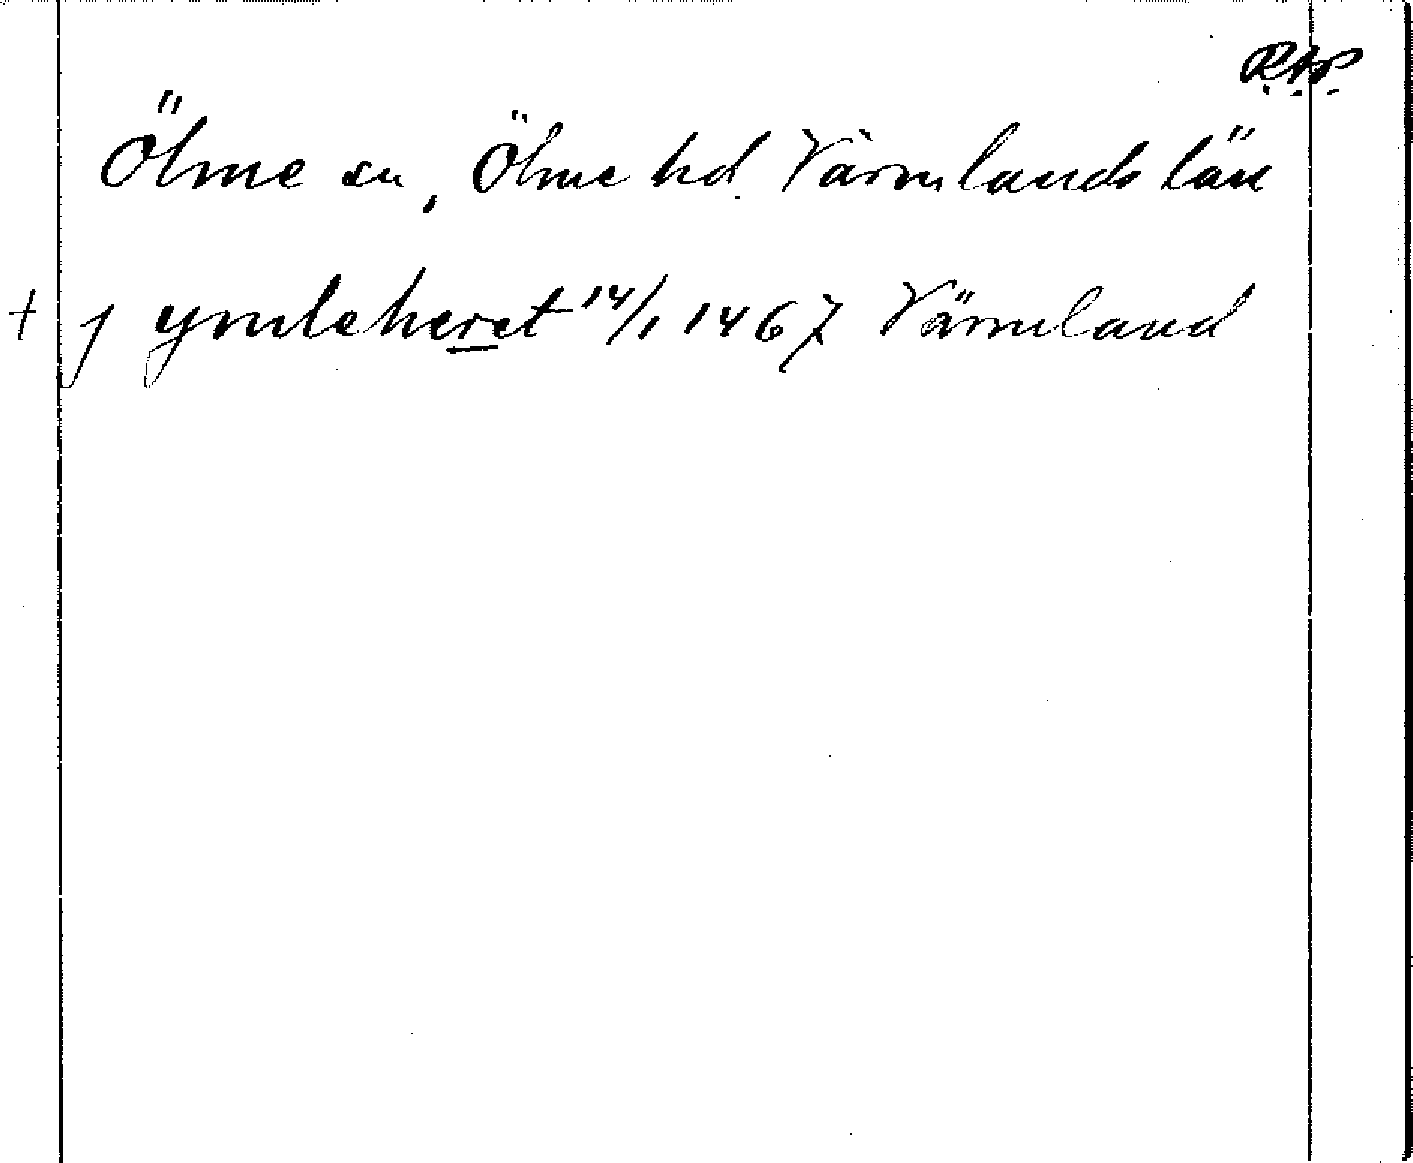 R.A.P.
Ölme sn, Ölme hd. Värmlands län
+ j ymleheret 14/1 1467 Värmland